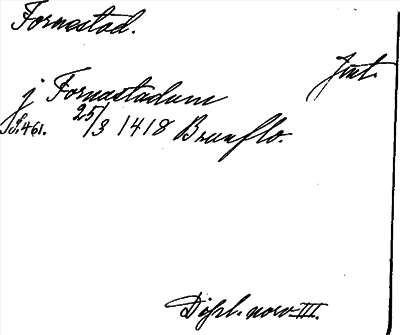 Fornastad.
Jmt.
j Fornastadum
S. 461. 25/3 1418 Brunflo.
Dipl. norv III.